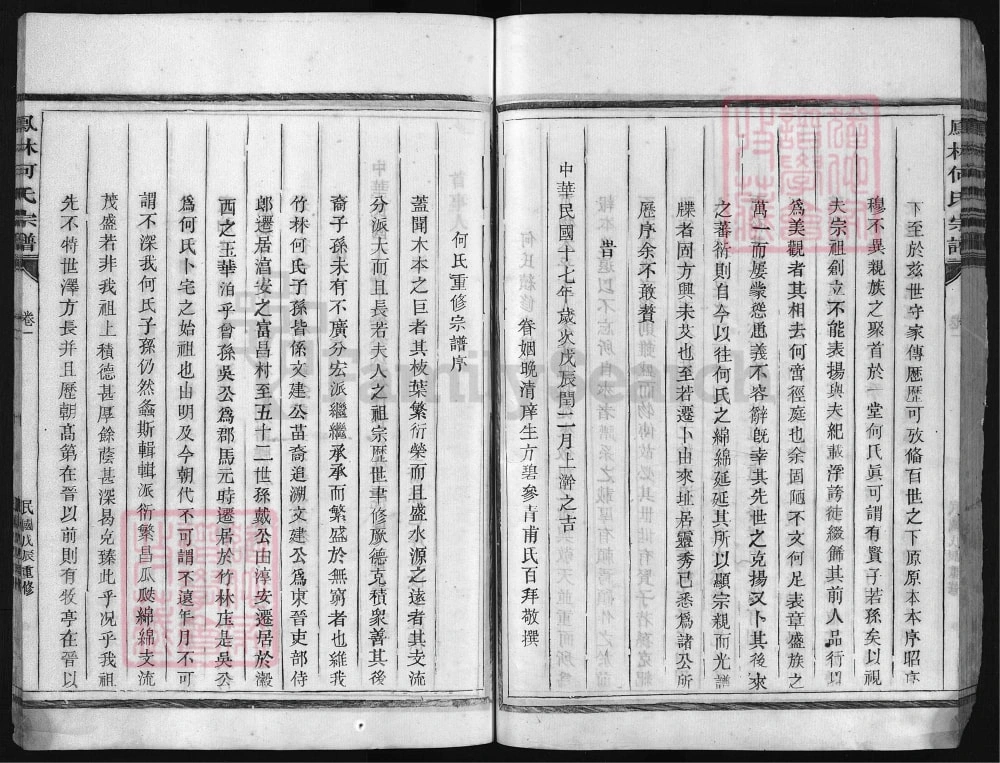 鳳林何氏宗譜
下至於兹世守家傳厯厯可攷俻百世之下原原本本序昭序
穆不異親族之聚首於一堂何氏眞可謂有賢子若孫矣以視
夫宗祖創立不能表揚與夫紀載浮誇徒綴餙其前人品行以
爲美觀者其相去何啻徑庭也余固陋不文何足表章盛族之
萬一而屢蒙慫恿義不容辭旣幸其先世之克揚又卜其後來
之蕃衍則自今以往何氏之綿綿延延其所以顯宗親而光譜
牒者固方興未艾也至若遷卜由來址居靈秀已悉爲諸公所
歴序余不敢贅
旹
中華民國十七年歲次戊辰閏二月上澣之吉
眷姻晩清庠生方碧參青甫氏百拜敬撰
何氏重修宗譜序
蓋聞木本之巨者其枝葉繁衍榮而且盛水源之遠者其支流
分派大而且長若夫人之祖宗歴世聿修厥德克積衆善其後
裔子孫未有不廣分宏派繼繼承承而繁盛於無窮者也維我
竹林何氏子孫皆係文建公苗裔追溯文建公爲東晉吏部侍
郎遷居湻安之富昌村至五十二世孫戴公由淳安遷居於瀫
西之玉華洎乎曾孫吳公爲郡馬元時遷居於竹林庄是吳公
爲何氏卜宅之始祖也由明及今朝代不可謂不遠年月不可
謂不深我何氏子孫仍然螽斯輯輯派衍繁昌瓜瓞綿綿支流
茂盛若非我祖上積德甚厚餘蔭甚深曷克臻此乎况乎我祖
先不特世澤方長并且歴朝髙第在晉以前則有牧亭在晉以
鳳林何氏宗譜
卷一
民國戊辰重修